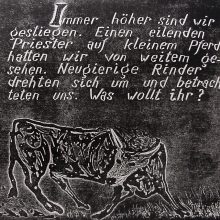 Immer höher sind wir
gestiegen. Einen eilenden
Priester auf kleinem Pferd
hatten wir von weitem ge-
sehen. Neugierige Rinder
drehten sich um und betrach-
teten uns. Was wollt ihr?